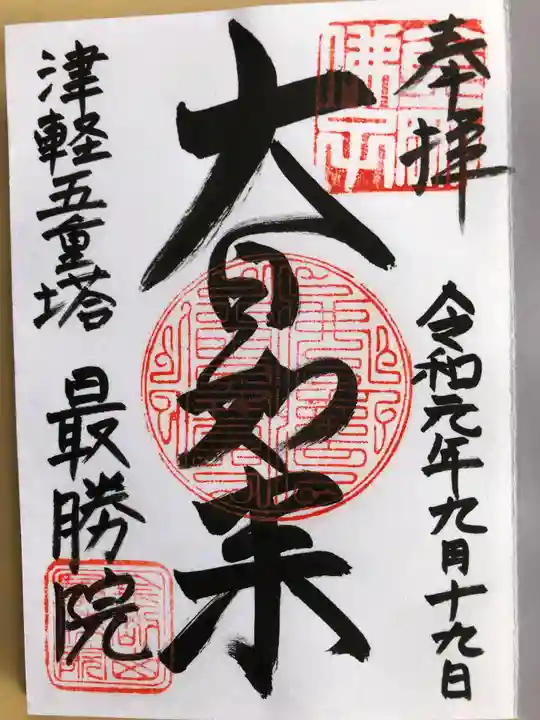 奉拝
令和元年九月十九日
大日如来
津軽五重塔
最勝院